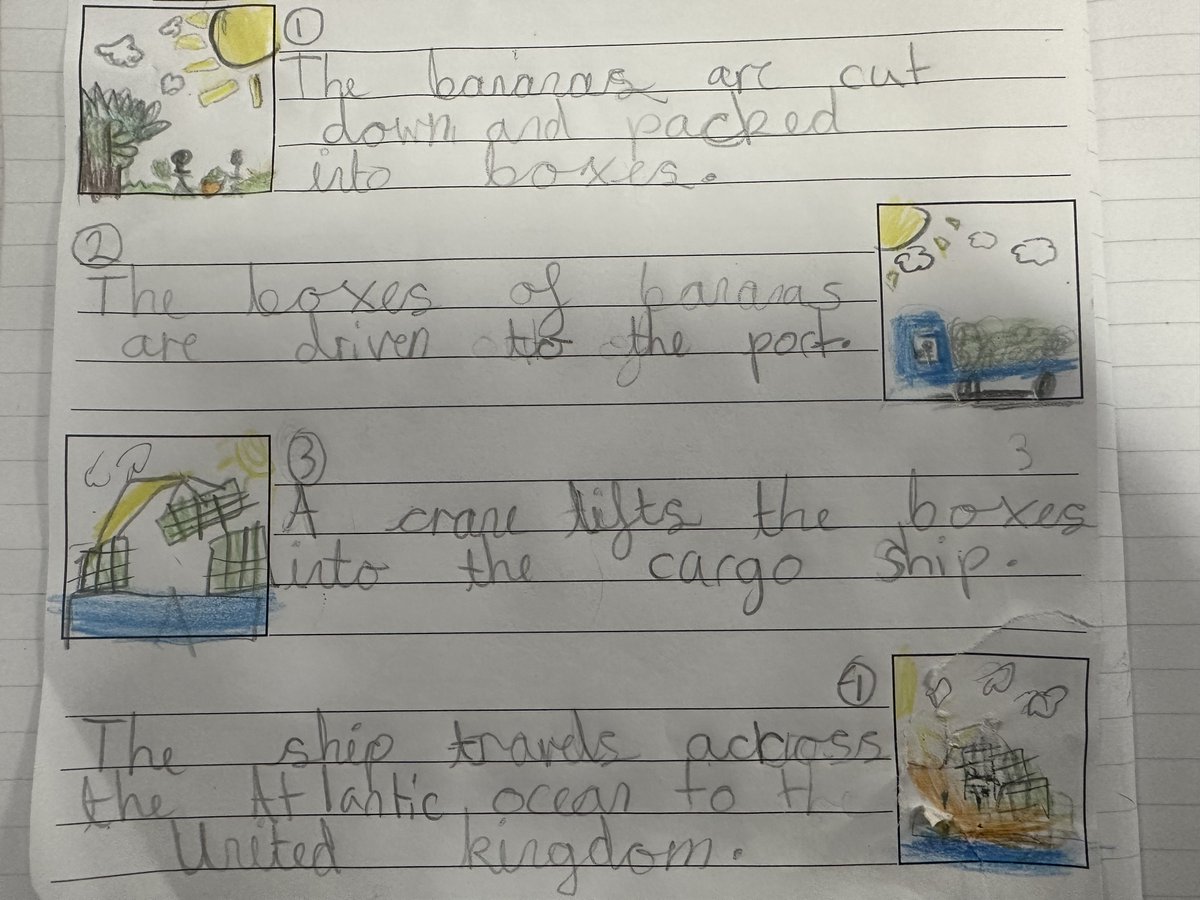 1
The bananas are cut
down and packed
into boxes.
2
The boxes of bananas
are driven to the port.
3
3
A crane lifts the boxes
into the cargo ship.
4
The ship travels ackross
the Atlantic ocean to the
United kingdom.